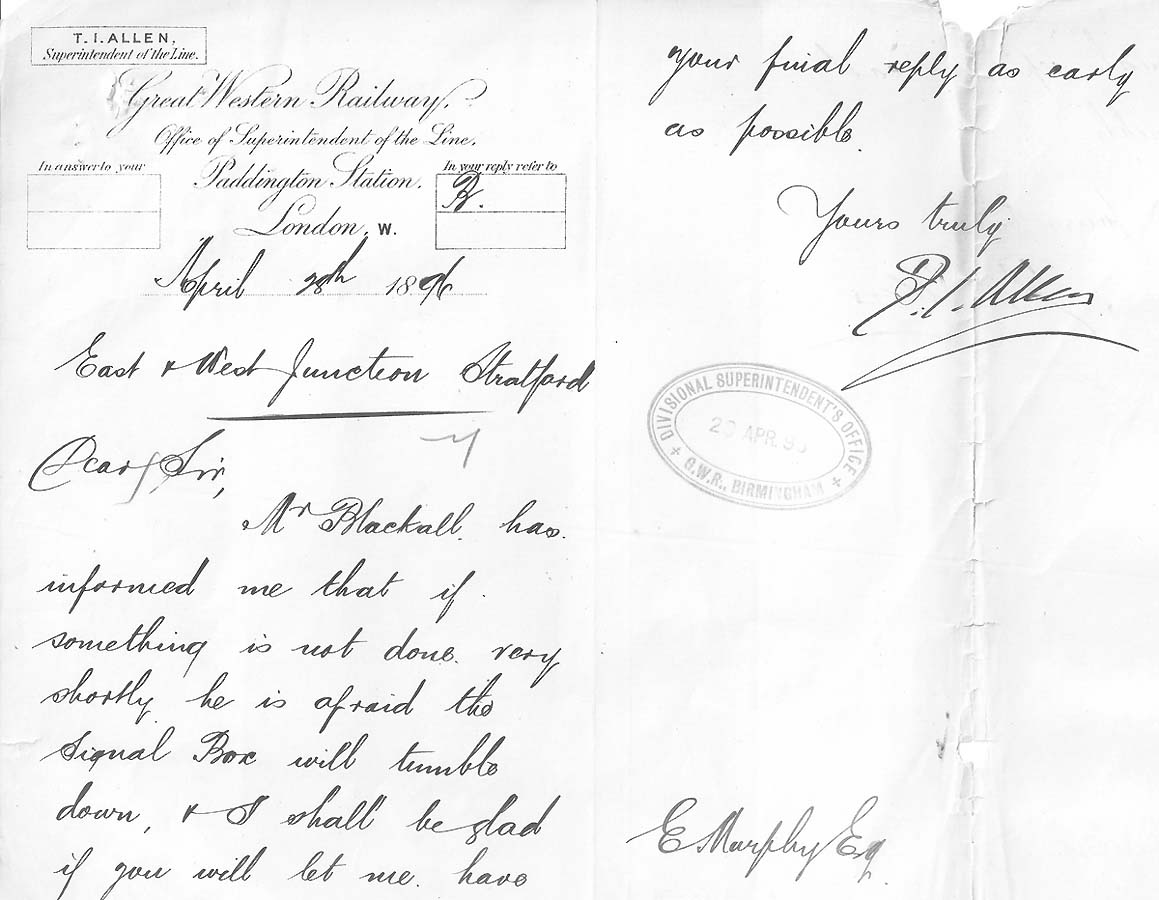 T. I. ALLEN,
Superintendent of the Line.
Great Western Railway.
Office of Superintendent of the Line.
In answer to your
Paddington Station.
In your reply refer to
B.
London, W.
April 28th 1896
East & West Junction Stratford
Dear Sir,
Mr Blackall has
informed me that if
something is not done very
shortly he is afraid the
Signal Box will tumble
down, & I shall be glad
if you will let me have
your final reply as early
as possible.
Yours truly
T. I. Allen
DIVISIONAL SUPERINTENDENT'S OFFICE
APR. 9
G.W.R., BIRMINGHAM
E Murphy Esq